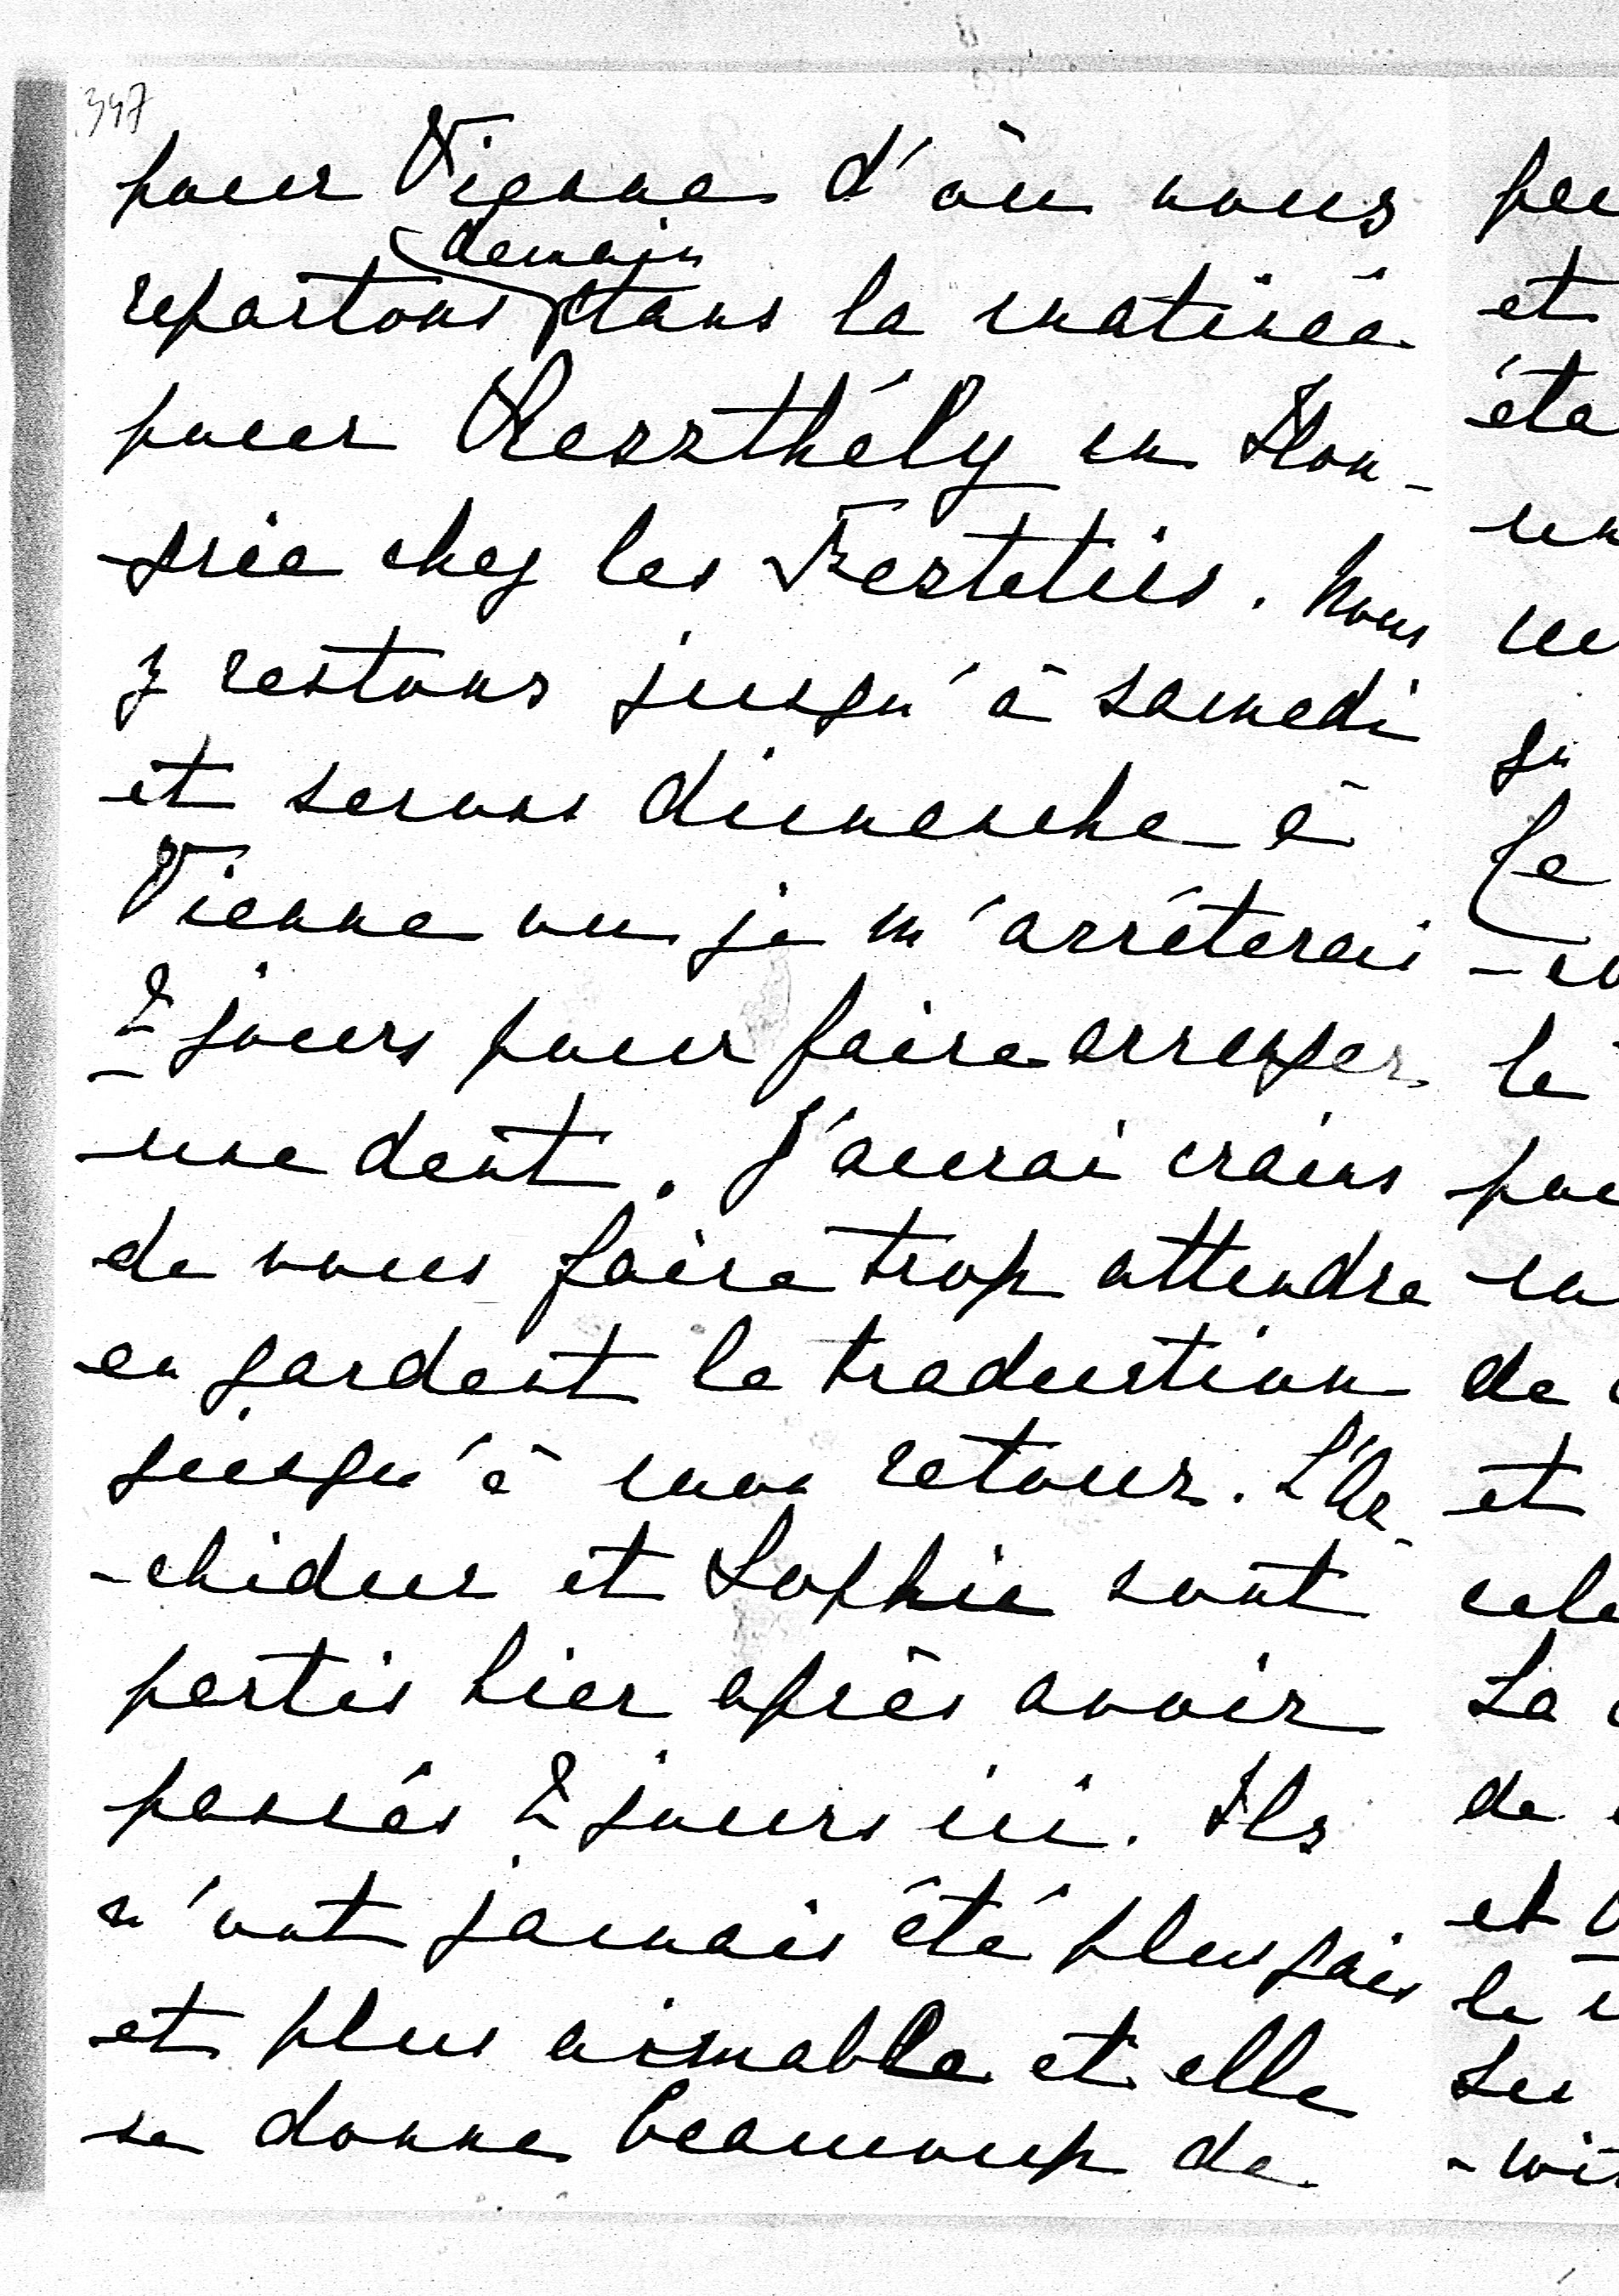 347
pour Vienne d'où nous
demain
repartons dans la matinée
pour Keszthély en Hon-
grie chez les Festetics. Nous
y restons jusqu'à samedi
et serons dimanche à
Vienne ou je m'arrêterai
2 jours pour faire arranger
une dent. J'aurai crains
de vous faire trop attendre
en gardant la traduction
jusqu'à mon retour. L'Ar-
-chiduc et Sophie sont
partis hier après avoir
passés 2 jours ici. Ils
n'ont jamais été plus gais
et plus aimable et elle
se donne beaucoup de
et
le
de
et
La
de
et
le